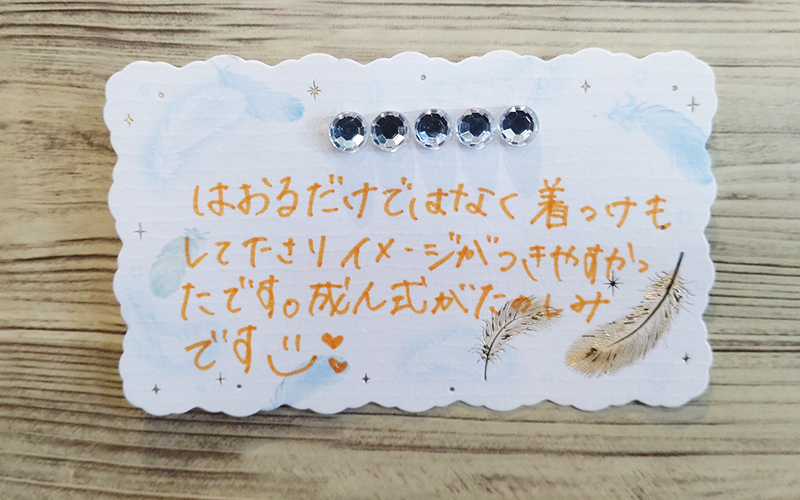 はおるだけではなく着つけも
してたさりイメージがつきやすかっ
たです。成ん式がたのしみ
です